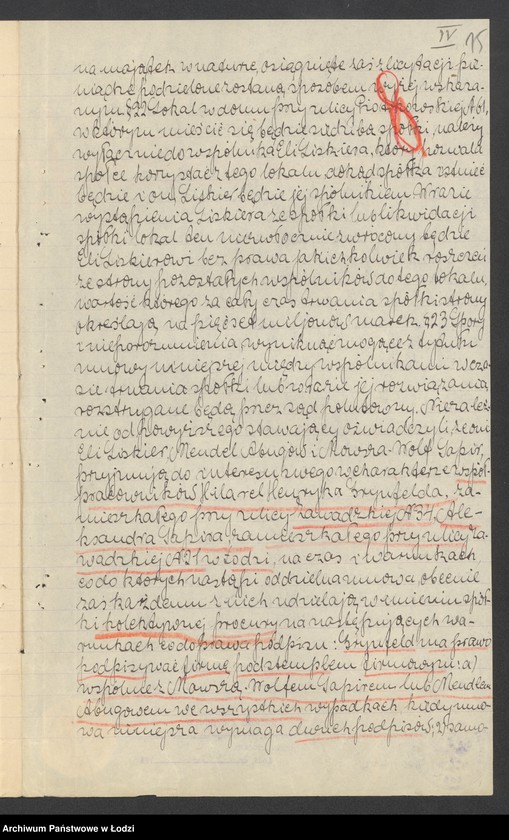 IV 15
na majątek w naturze, osiągnięte zaś z licytacji pie-
niądze podzielone zostaną sposobem wyżej wskaza-
nym. § 22 Lokal w domu przy ulicy Piotrkowskiej № 61,
w którym mieścić się będzie siedziba spółki, należy
wyłącznie do wspólnika Eli Liskiera, który zezwala
spółce korzystać z tego lokalu dokąd spółka istnieć
będzie i on Liskier będzie jej spólnikiem. W razie
wystąpienia Liskiera ze spółki lub likwidacji
spółki lokal ten niezwłocznie zwrócony będzie
Eli Liskierowi bez prawa jakichkolwiek roszczeń
ze strony pozostałych wspólników do tego lokalu,
wartość którego za cały czas trwania spółki strony
określają na pięćset miljonów marek. § 23 Spory
i nieporozumienia, wyniknąć mogące z tytułu
umowy niniejszej między wspólnikami w cza-
sie trwania spółki lub w razie jej rozwiązania,
rozstrzygane będą przez sąd polubowny. Niezależ-
nie od powyższego stawający oświadczyli, że oni
Eli Liskier, Mendel Abugów i Mowsza-Wolf Sapir,
przyjmują do interesu swego w charakterze współ-
pracowników Hilarel Henryka Grynfelda, za-
mieszkałego przy ulicy Zawadzkiej № 37 i Ale-
ksandra Sapira, zamieszkałego przy ulicy Za-
wadzkiej № 21 w Łodzi, na czas i warunkach
co do których nastąpi oddzielna umowa, obecnie
zaś każdemu z nich udzielają w imieniu spół-
ki kolektywnej prokury na następujących wa-
runkach co do prawa podpisu: Grynfeld ma prawo
podpisywać firmę pod stemplem firmowym: a)
wspólnie z Mowszą-Wolfem Sapirem lub Mendlem
Abugowem we wszystkich wypadkach kiedy umo-
wa niniejsza wymaga dwóch podpisów, 2) samo-
Archiwum Państwowe w Łodzi